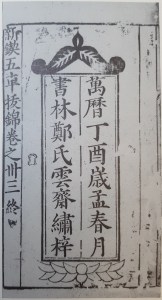 萬曆丁酉歲孟春月
書林鄭氏雲齋繡梓
新鍥五車拔錦卷之卅三終